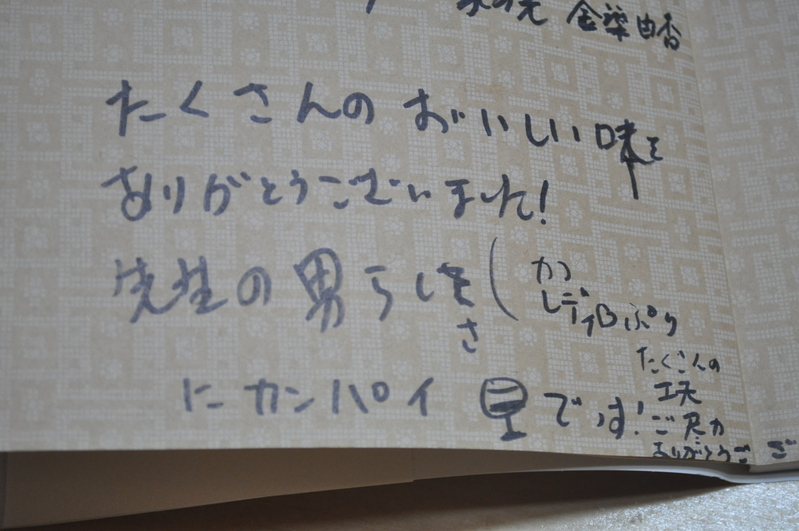 金築由香
たくさんのおいしい味を
ありがとうございました!
先生の男らしさ(か
レディBぷり
にカンパイです!
たくさんの
工夫
ご尽力
ありがとうござ